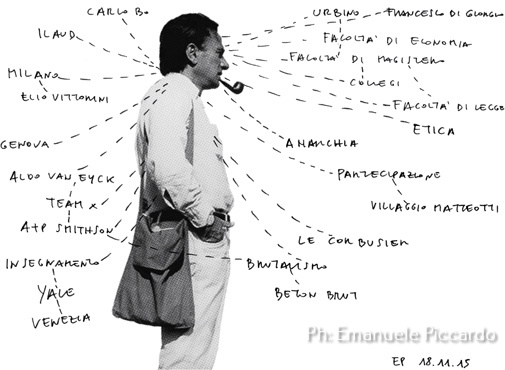 CARLO BO
ILAUD
MILANO
ELIO VITTORINI
GENOVA
ALDO VAN EYCK
TEAM X
A+P SMITHSON
INSEGNAMENTO
YALE
VENEZIA
URBINO
FRANCESCO DI GIORGIO
FACOLTA' DI ECONOMIA
FACOLTA' DI MAGISTERO
COLLEGI
FACOLTA' DI LEGGE
ETICA
ANARCHIA
PARTECIPAZIONE
VILLAGGIO MATTEOTTI
LE CORBUSIER
BRUTALISMO
BETON BRUT
Ph: Emanuele Piccardo
EP 18.11.15